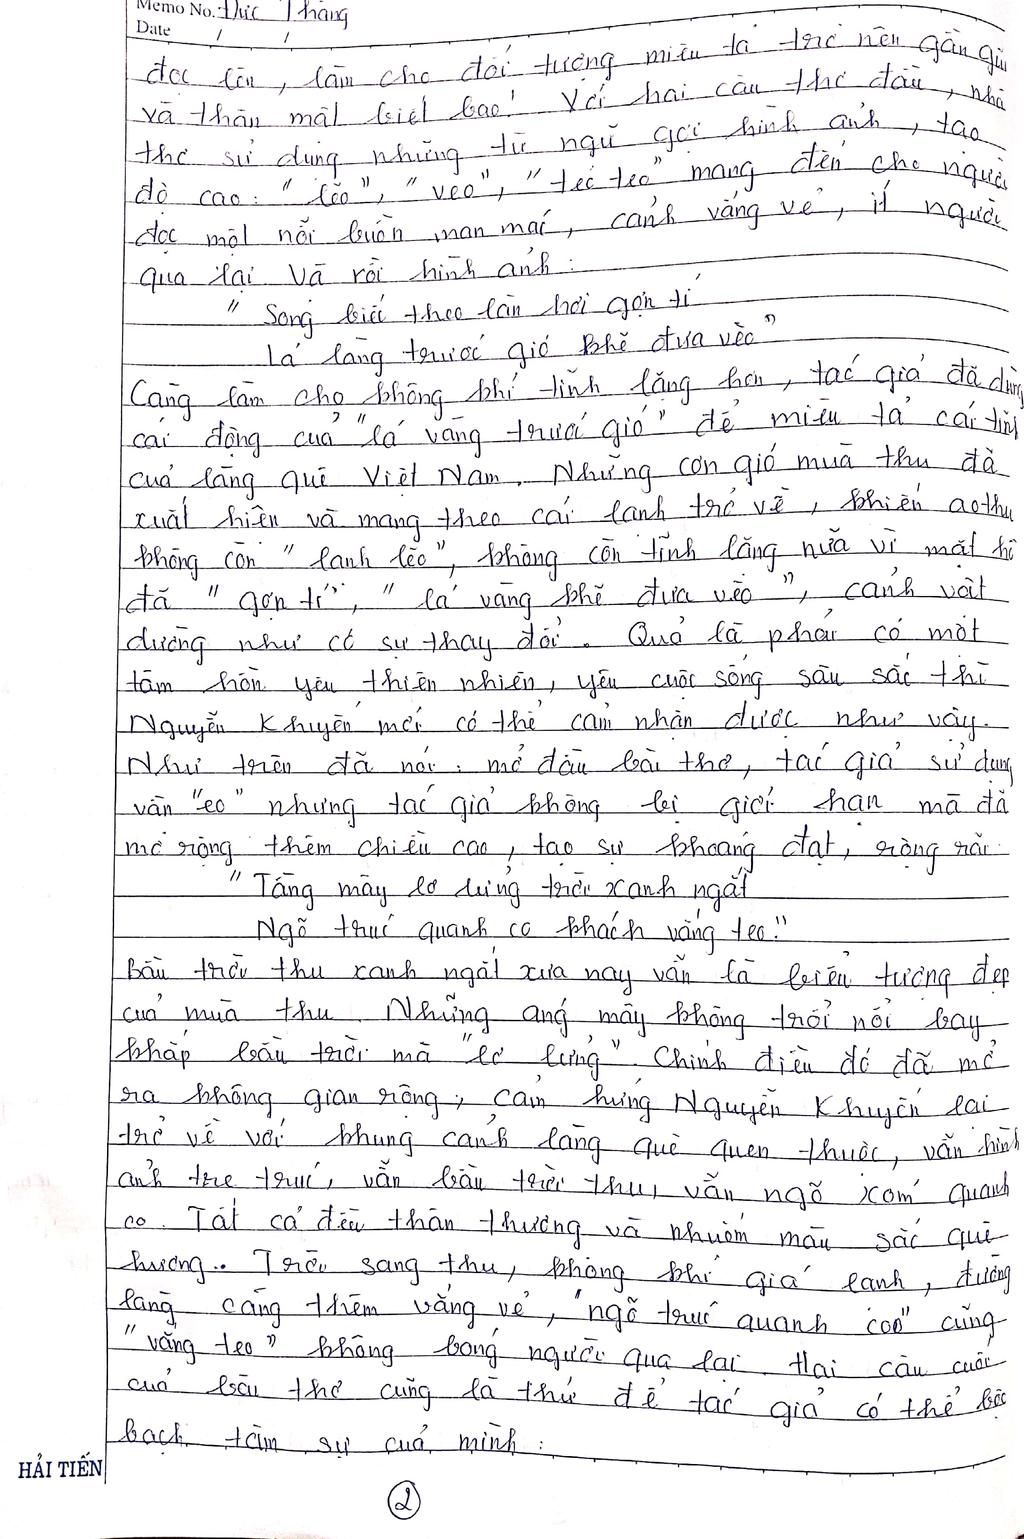 Memo No. Đức Thắng
Date / /
đọc lên, làm cho đối tượng miêu tả trở nên gần gũi
và thân mật biết bao! Với hai câu thơ đầu, nhà
thơ sử dụng những từ ngữ gợi hình ảnh, tạo
độ cao: "lẽo", "veo", "tẻo teo" mang đến cho người
đọc một nỗi buồn man mác, cảnh vắng vẻ, ít người
qua lại và rồi hình ảnh:
"Sóng biếc theo làn hơi gợn tí
Lá vàng trước gió khẽ đưa vèo"
Càng làm cho không khí tĩnh lặng hơn, tác giả đã dùng
cái động của "lá vàng trước gió" để miêu tả cái tĩnh
của làng quê Việt Nam. Những cơn gió mùa thu đã
xuất hiện và mang theo cái lạnh trở về, khiến ao thu
không còn "lạnh lẽo", không còn tĩnh lặng nữa vì mặt hồ
đã "gợn tí", "lá vàng khẽ đưa vèo", cảnh vật
dường như có sự thay đổi. Quả là phải có một
tâm hồn yêu thiên nhiên, yêu cuộc sống sâu sắc thì
Nguyễn Khuyến mới có thể cảm nhận được như vậy.
Như trên đã nói: mở đầu bài thơ, tác giả sử dụng
vần "eo" nhưng tác giả không bị giới hạn mà đã
mở rộng thêm chiều cao, tạo sự khoáng đạt, rộng rãi:
"Tầng mây lơ lửng trời xanh ngắt
Ngõ trúc quanh co khách vắng teo."
Bầu trời thu xanh ngát xưa nay vẫn là biểu tượng đẹp
của mùa thu. Những áng mây không trôi nổi bay
khắp bầu trời mà "lơ lửng". Chính điều đó đã mở
ra không gian rộng, cảm hứng Nguyễn Khuyến lại
trở về với khung cảnh làng quê quen thuộc, vẫn hình
ảnh tre trúc, vẫn bầu trời thu, vẫn ngõ xóm quanh
co. Tất cả đều thân thương và nhuốm màu sắc quê
hương.. Trời sang thu, không khí giá lạnh, đường
làng càng thêm vắng vẻ, "ngõ trúc quanh coo" cũng
"vắng teo" không bóng người qua lại. Hai câu cuối
của bài thơ cũng là thứ để tác giả có thể bộc
bạch tâm sự của mình:
HẢI TIẾN
2